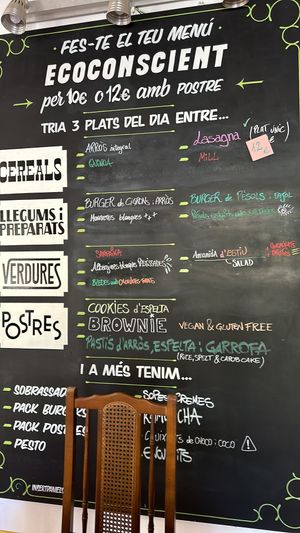 FES-TE EL TEU MENÚ
ECOCONSCIENT
per 10€ o 12€ amb POSTRE
TRIA 3 PLATS DEL DIA ENTRE...
CEREALS
ARRÒS integral
QUINOA
Lasagna
(PLAT ÚNIC)
12€
MILL
LLEGUMS i
PREPARATS
BURGER de CIGRONS i ARRÒS
Monsetes blanques
BURGER de PÈSOLS i
VERDURES
Albergínies
Bledes amb
Amanida d'ESTIU
SALAD
POSTRES
COOKIES d'ESPELTA
BROWNIE VEGAN & GLUTEN FREE
PASTIS d'ARRÒS, ESPELTA i GARROFA
(RICE, SPELT & CAROB CAKE)
I A MÉS TENIM...
SOBRASSADA
PACK BURGERS
PACK POSTRES
PESTO
de CHOCO i COCO